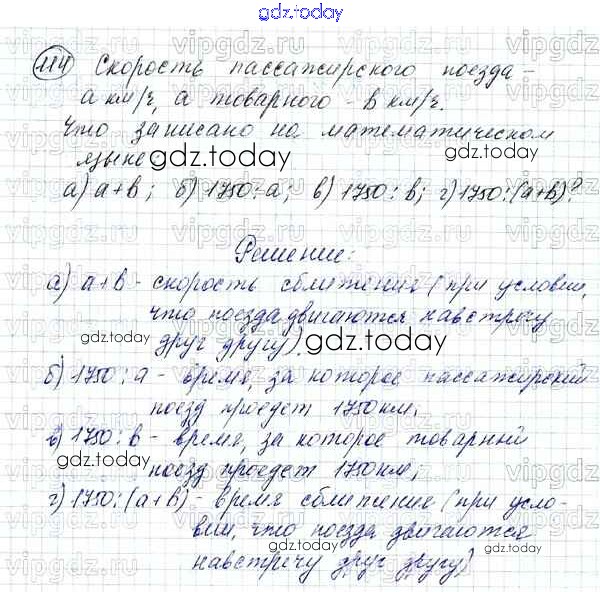 gdz.today
114 Скорость пассажирского поезда -
а км/ч, а товарного - в км/ч.
Что записано на математическом
языке
gdz.today
gdz.today
а) а+в; б) 1750:а; в) 1750:в; г) 1750:(а+в)?
Решение:
а) а+в - скорость сближения (при условии,
что поезда двигаются навстречу
друг другу).
gdz.today
gdz.today
б) 1750:а - время, за которое пассажирский
поезд проедет 1750км;
gdz.today
в) 1750:в - время, за которое товарный
поезд проедет 1750км;
gdz.today
gdz.today
г) 1750:(а+в) - время сближение (при усло-
вии, что поезда двигаются
навстречу друг другу)
gdz.today
gdz.today